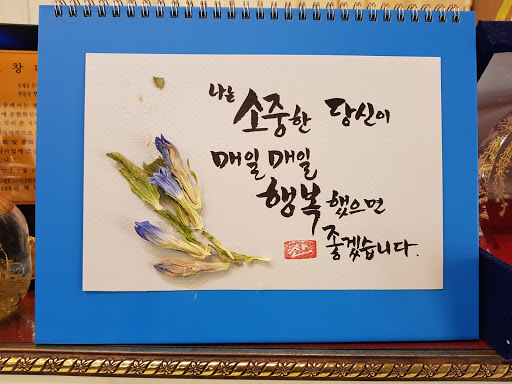 나는
소중한 당신이
매일 매일
행복했으면
좋겠습니다.